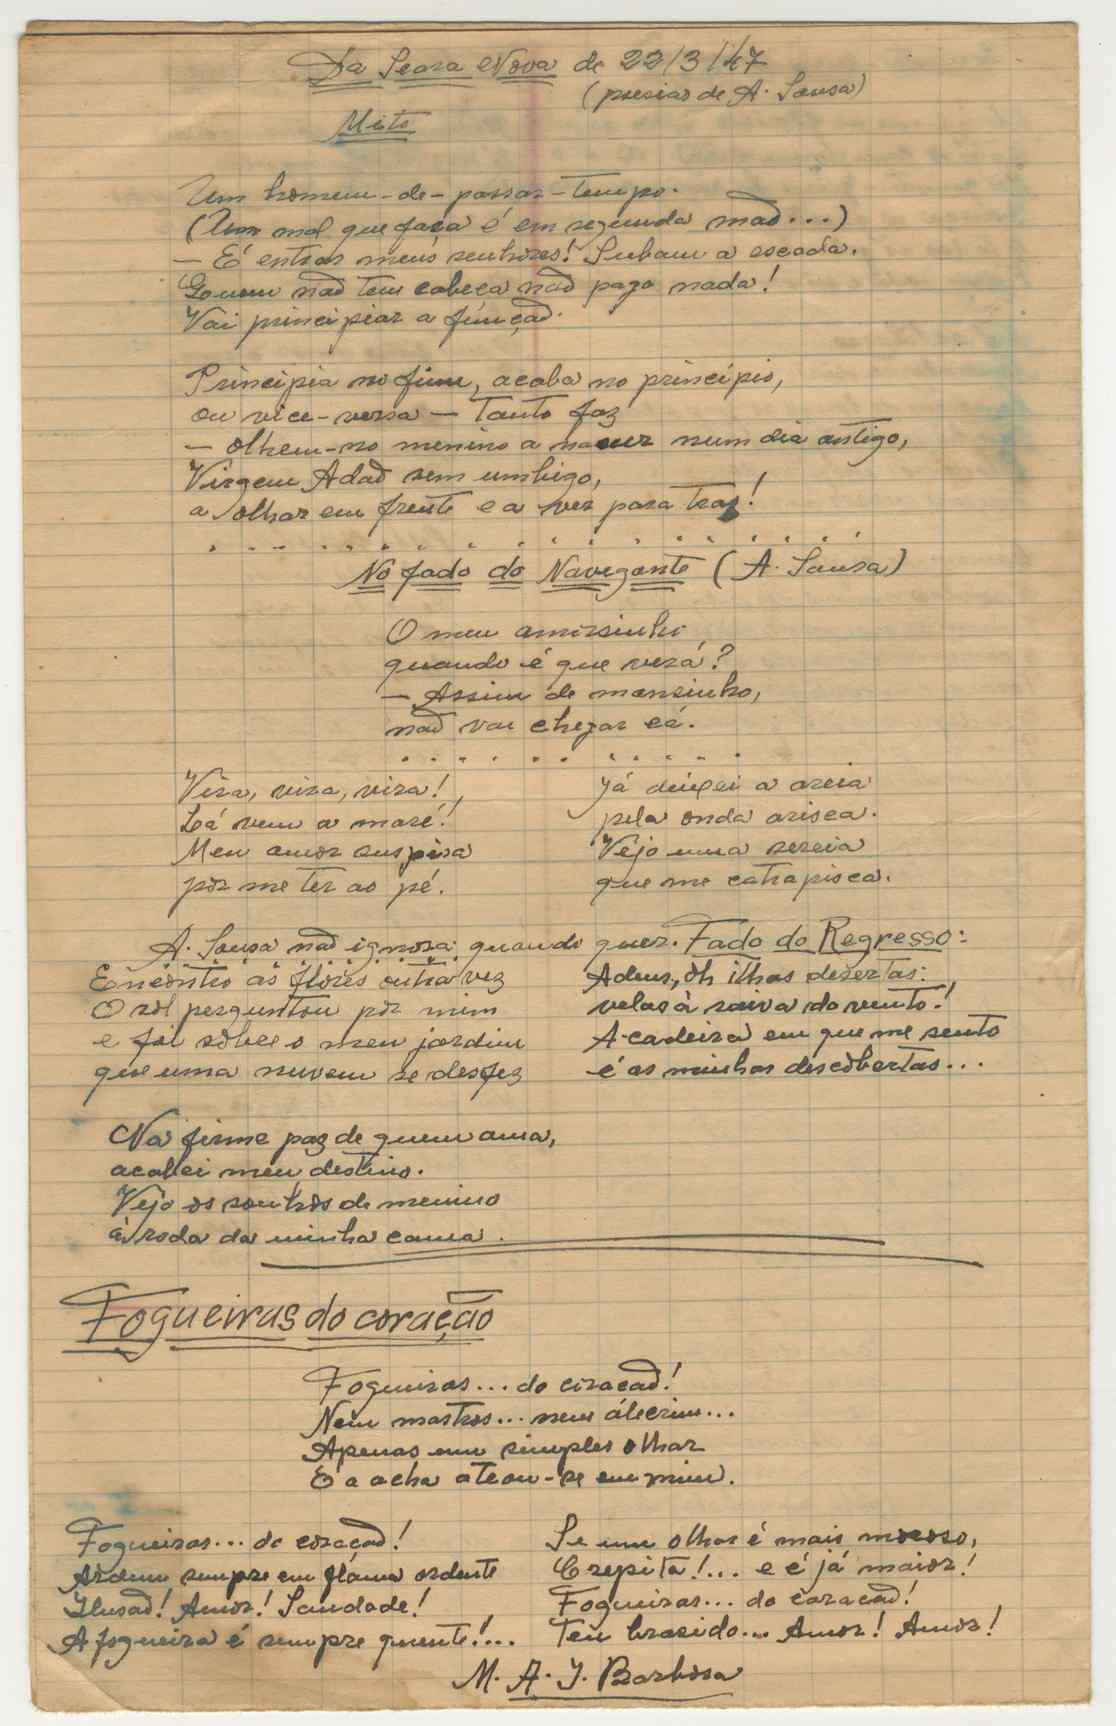 Da Seara Nova de 22/3/47
(poesias de A. Sousa)
Mito
Um homem-de-passar-tempo.
(Um mal que faça é em segunda mão...)
— É entrar meus senhores! Subam a escada.
Quem não tem cabeça não paga nada!
Vai principiar a função.
Principia no fim, acaba no princípio,
ou vice-versa — tanto faz
— olhem-no menino a nascer num dia antigo,
Virgem Adão sem umbigo,
a olhar em frente e a ver para traz!
. . . . . . . . . . . . . . . . . .
No fado do Navegante (A. Sousa)
O meu amorsinho
quando é que virá?
— Assim de mansinho,
não vai chegar cá.
. . . . . . . . . .
Vira, vira, vira!
Lá vem a maré!
Meu amor suspira
por me ter ao pé.
Já deixei a areia
pela onda arisca.
Vejo uma sereia
que me catrapisca.
A. Sousa não ignora: quando quer. Fado do Regresso:
Encontro as flores outra vez
O sol perguntou por mim
e foi sobre o meu jardim
que uma nuvem se desfez
Adeus, oh ilhas desertas:
velas à raiva do vento!
A cadeira em que me sento
é as minhas descobertas...
Na firme paz de quem ama,
acabei meu destino.
Vejo os sonhos de menino
à roda da minha cama.
Fogueiras do coração
Fogueiras... do coração!
Nem mastros... nem álecrim...
Apenas um simples olhar
E a acha ateou-se em mim.
Fogueiras... do coração!
Ardem sempre em flâma ardente
Ilusão! Amor! Saudade!
A fogueira é sempre quente!...
Se um olhar é mais mocoso,
Crepita!... e é já maior!
Fogueiras... do coração!
Tem brasido... Amor! Amor!
M. A. J. Barbosa